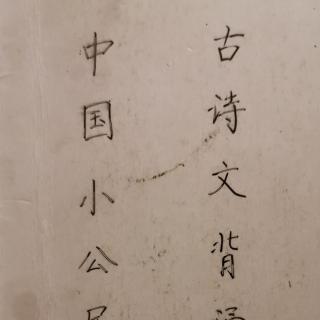 古诗文背
中国小公